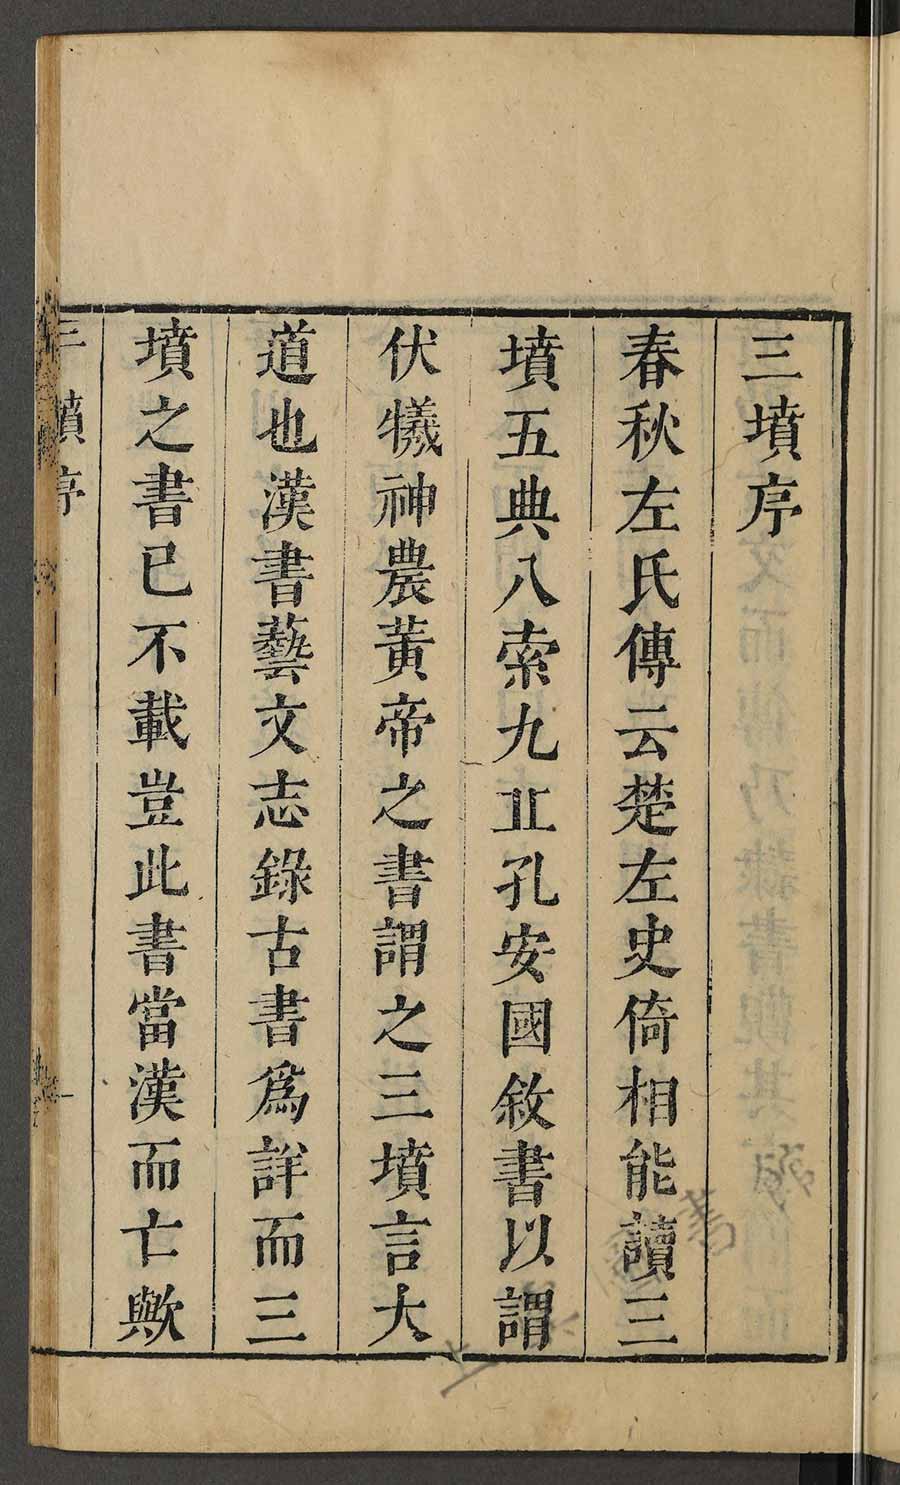 三墳序
春秋左氏傳云楚左史倚相能讀三
墳五典八索九丠孔安國敘書以謂
伏犧神農黃帝之書謂之三墳言大
道也漢書藝文志錄古書爲詳而三
墳之書已不載豈此書當漢而亡歟
三墳序